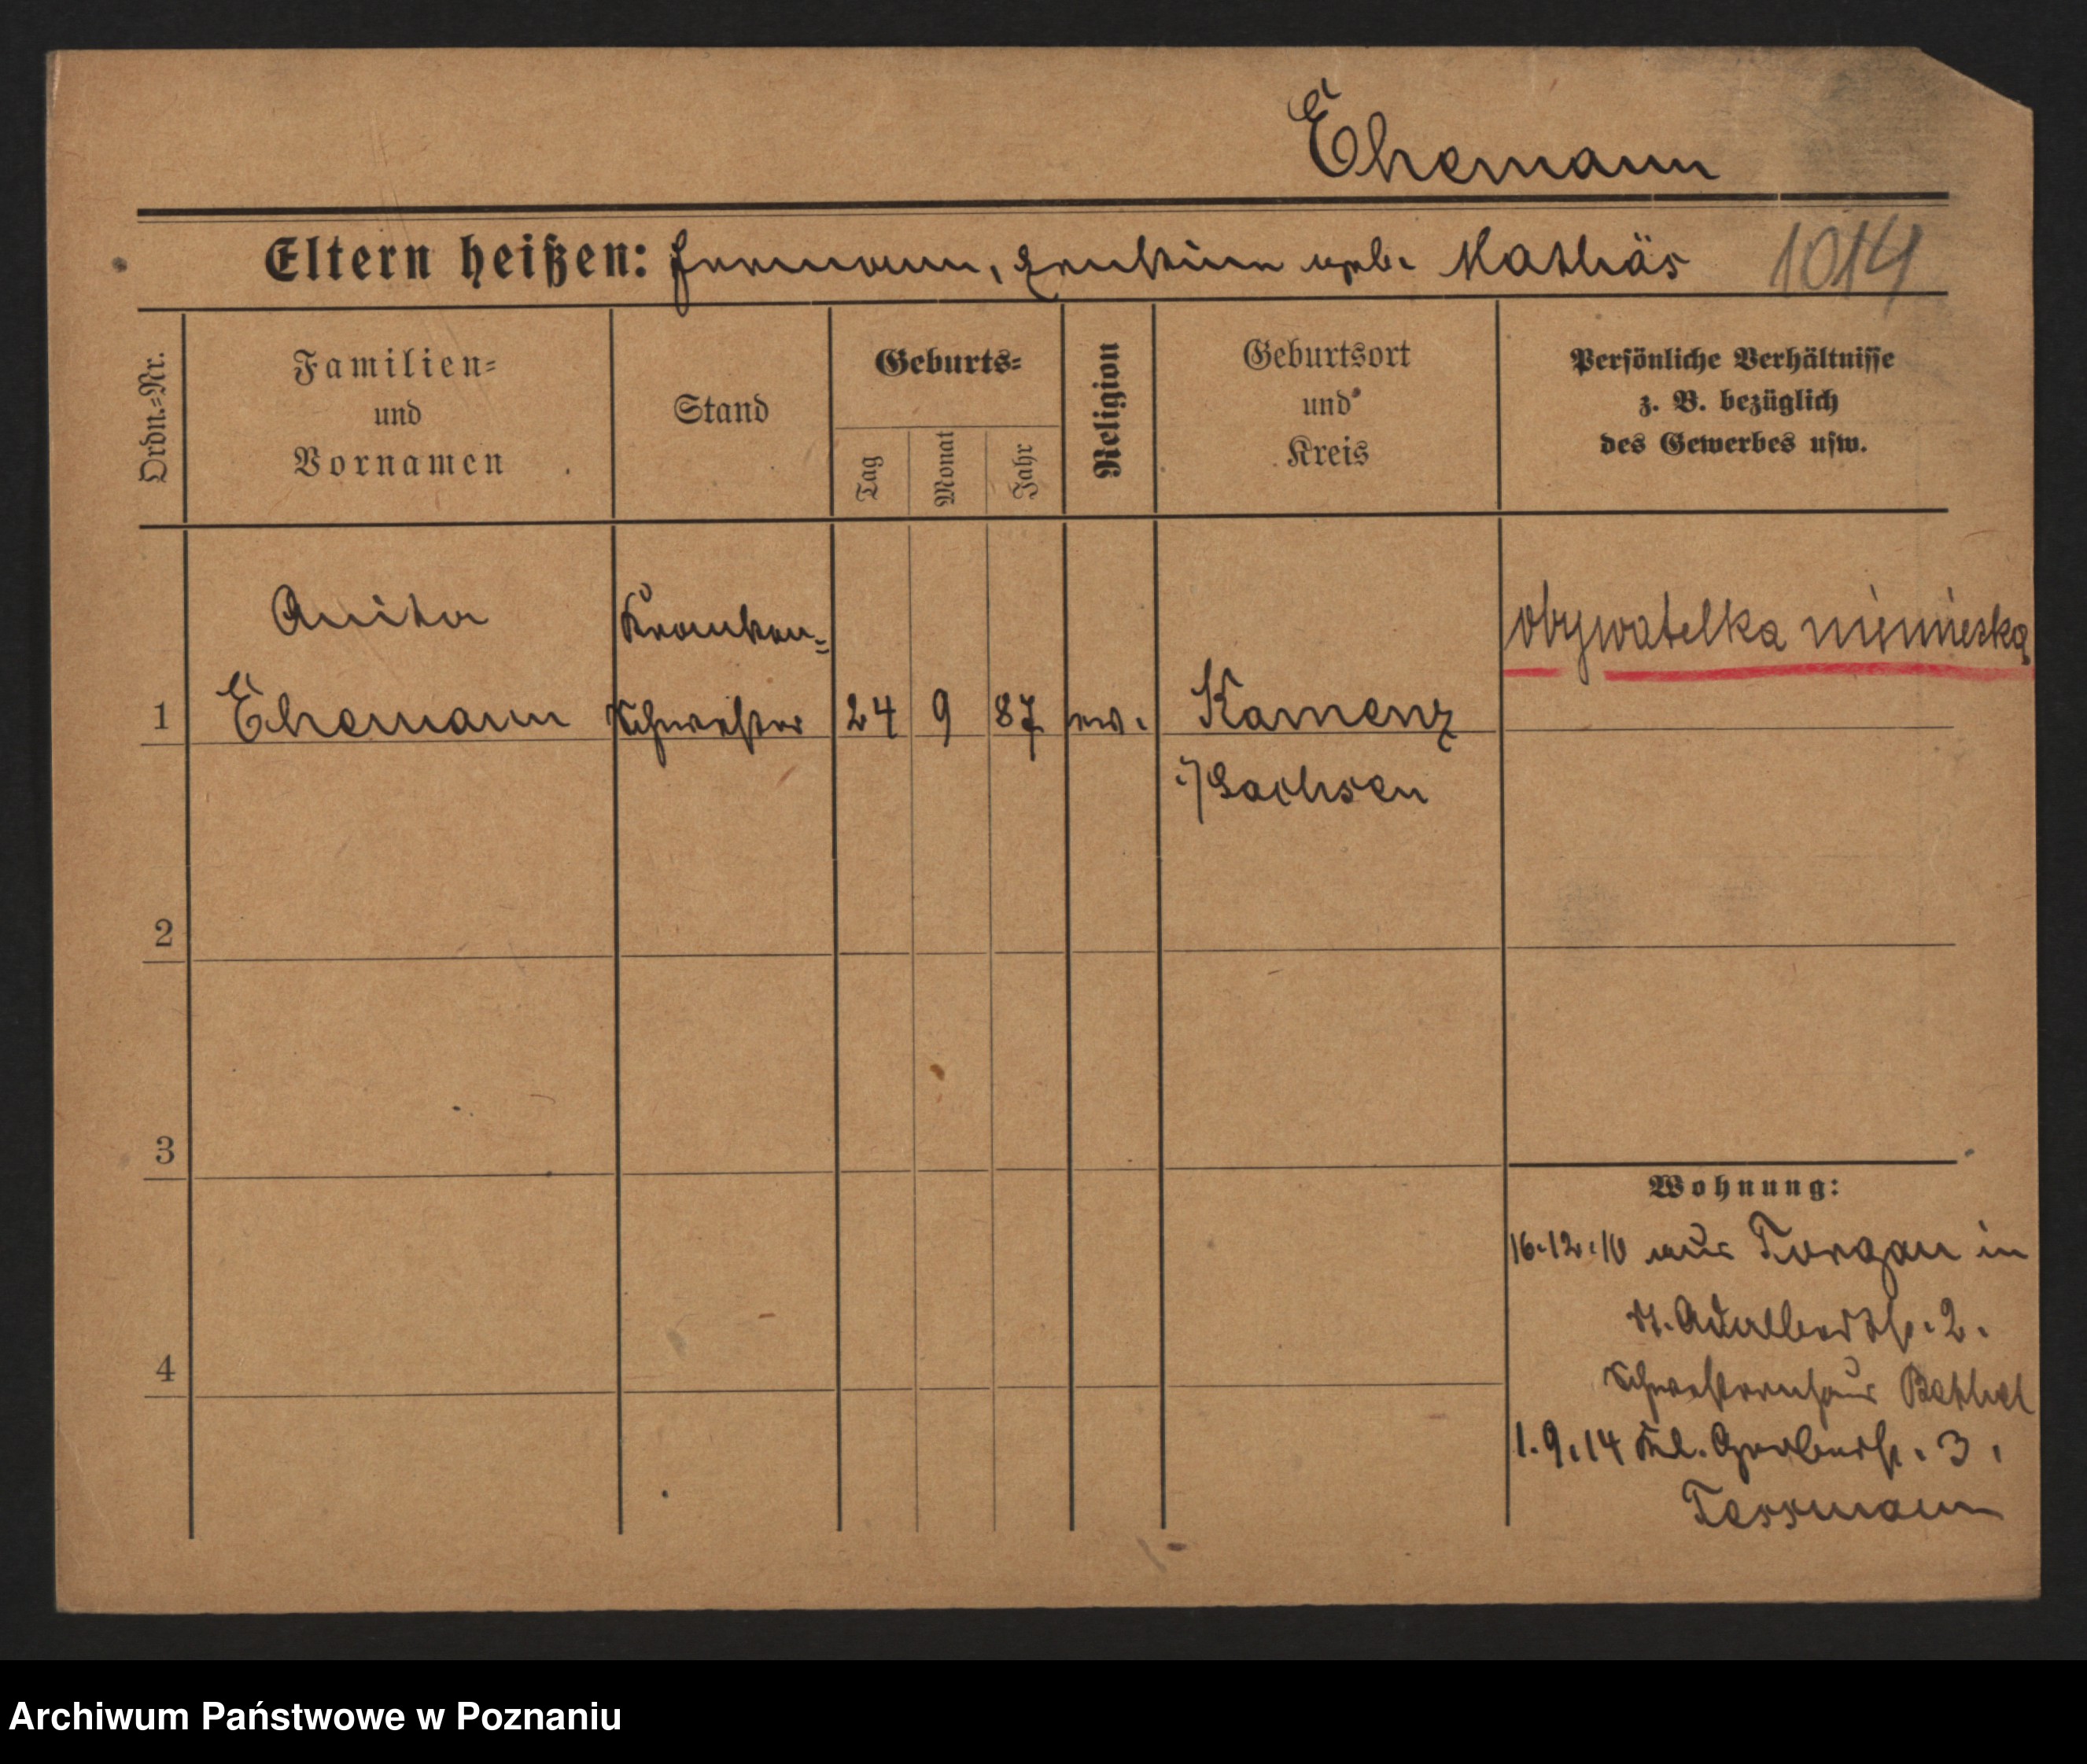 Ehemann
Eltern heißen: Hermann, Ernstine geb. Mathäs 1014
Ordn.=Nr.
Familien=
und
Vornamen
Stand
Geburts=
Tag
Monat
Jahr
Religion
Geburtsort
und
Kreis
Persönliche Verhältnisse
z. B. bezüglich
des Gewerbes usw.
Anita
Kranken=
obywatelka niemiecka
1 Ehemann schwester 24 9 87 ev. Kamenz
i/Sachsen
2
3
Wohnung:
16.12.10 aus Torgau in
St. Adalbertstr. 2.
4
Schwesternhaus Bethel
1.9.14 Kl. Gerberstr. 3,
Tessmann
Archiwum Państwowe w Poznaniu